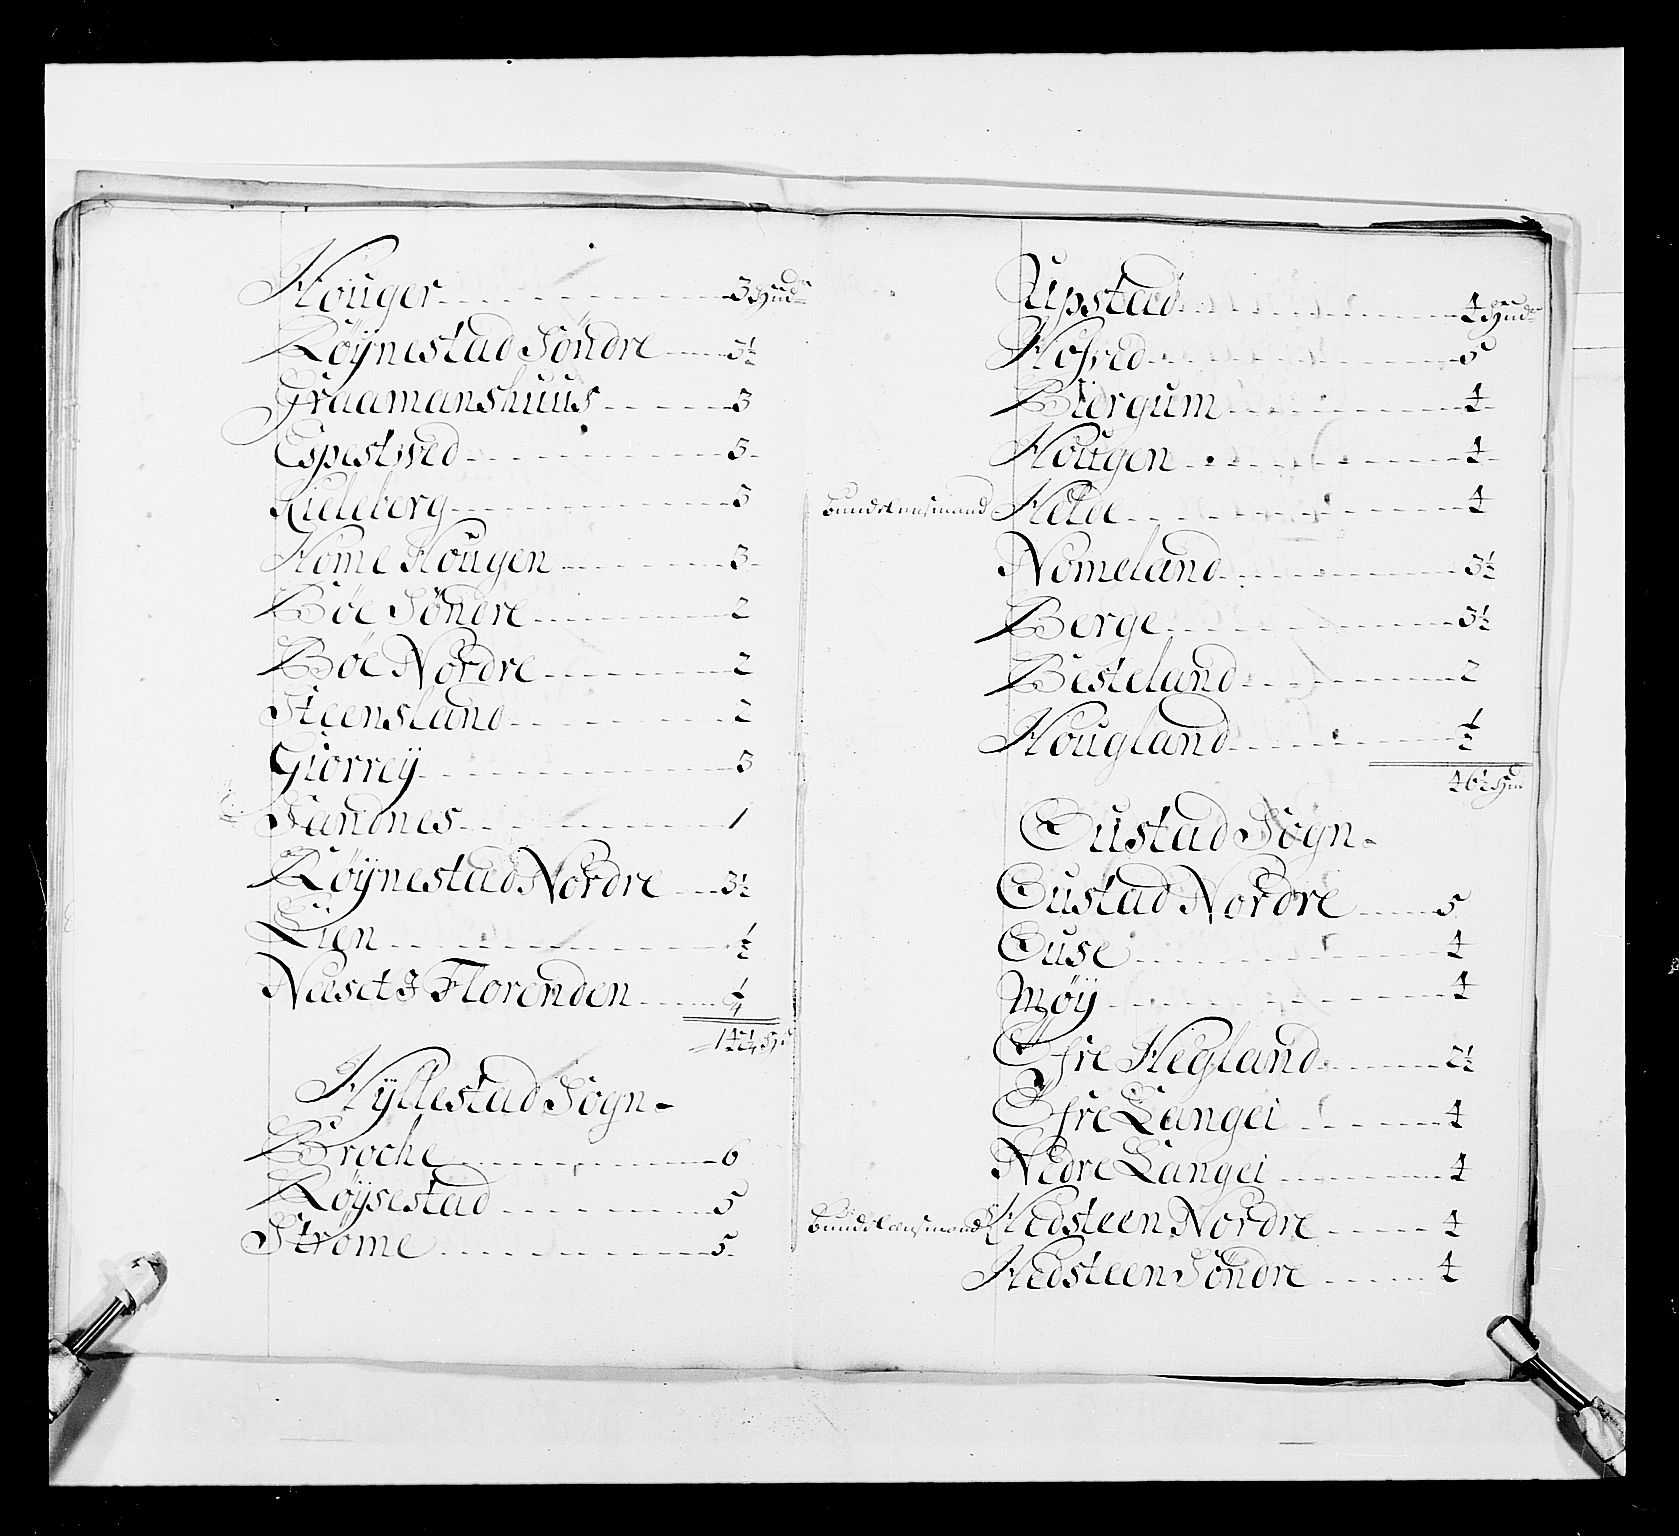 Houger - 3 Hud:
Røÿnestad Söndre - 3½
Graamanshuus - 3
Espestved - 3
Kieleberg - 3
Home Hougen - 3
Bøe Söndre - 2
Bøe Nordre - 2
Steensland - 2
Giorreÿ - 3
Sandnes - 1
Røÿnestad Nordre - 3½
Lien - ½
Næset & Florenden - ¼
Hÿllestad Sogn
Broche - 6
Røÿsestad - 5
Strøme - 5
Upstad - 4 Hud:
Hofred - 5
Biørgum - 4
Hougen - 4
Bundslensmand Helde - 4
Nomeland - 3½
Berge - 3½
Besteland - 2
Hougland - ½
46½ Hud
Oustad Sogn
Oustad Nordre - 5
Ouse - 4
Møÿ - 4
Øfre Hegland - 2½
Øfre Langei - 4
Nedre Langei - 4
Bundslensmand Hedsteen Nordre - 4
Hedsteen Söndre - 4